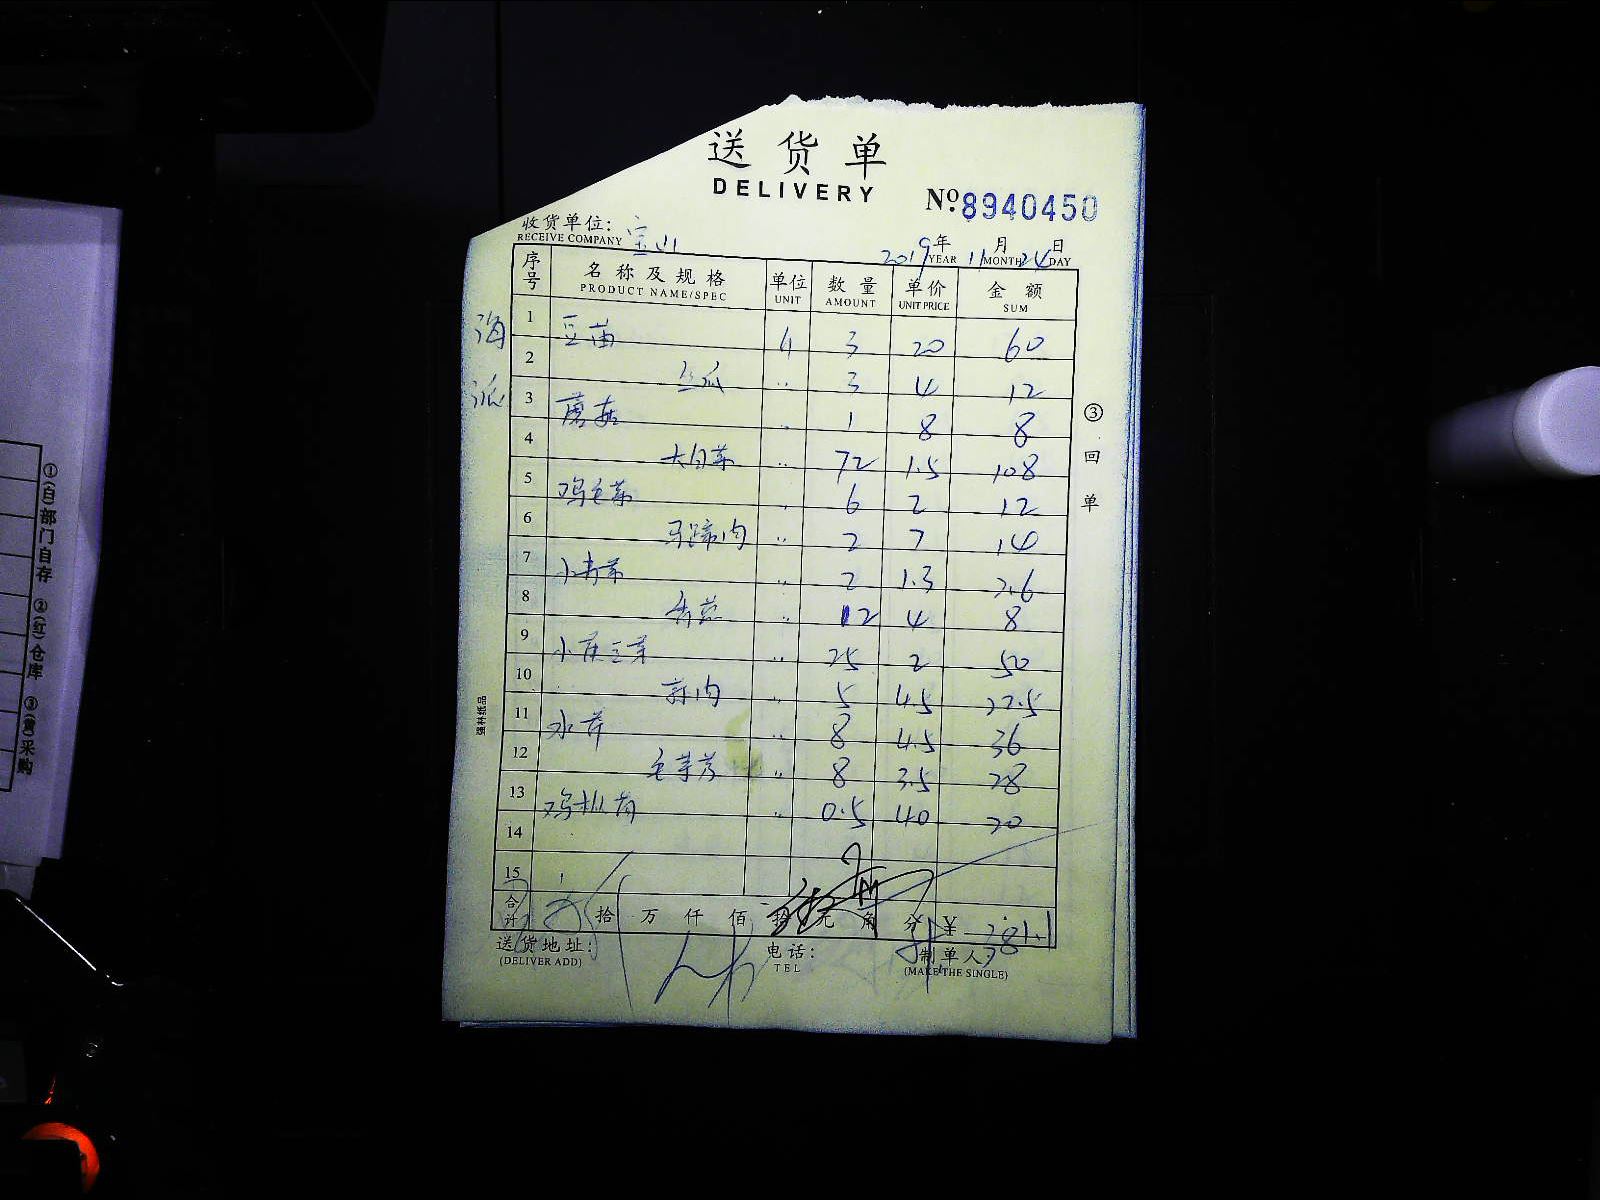 送货单
DELIVERY
№:8940450
收货单位: 宝山
RECEIVE COMPANY
2019年 11月 24日
YEAR MONTH DAY
序号 名称及规格 单位 数量 单价 金额
PRODUCT NAME/SPEC UNIT AMOUNT UNIT PRICE SUM
海派
1 豆苗 斤 3 20 60
2 丝瓜 〃 3 4 12
3 蘑菇 〃 1 8 8
4 大白菜 〃 72 1.5 108
5 鸡毛菜 〃 6 2 12
6 马蹄肉 〃 2 7 14
7 小青菜 〃 2 1.3 2.6
8 香菜 〃 12 4 8
9 小黄豆芽 〃 25 2 50
10 〃 5 4.5 22.5
11 水芹 〃 8 4.5 36
12 毛芋艿 〃 8 3.5 28
13 鸡枞菌 〃 0.5 40 20
14
15
合计 拾 万 仟 佰 拾 元 角 分 ¥ 381.1
送货地址:
(DELIVER ADD)
电话:
TEL
制单人:
(MAKE THE SINGLE)
③回单
强林纸品
①(白)部门自存 ②(红)仓库 ③(黄)采购